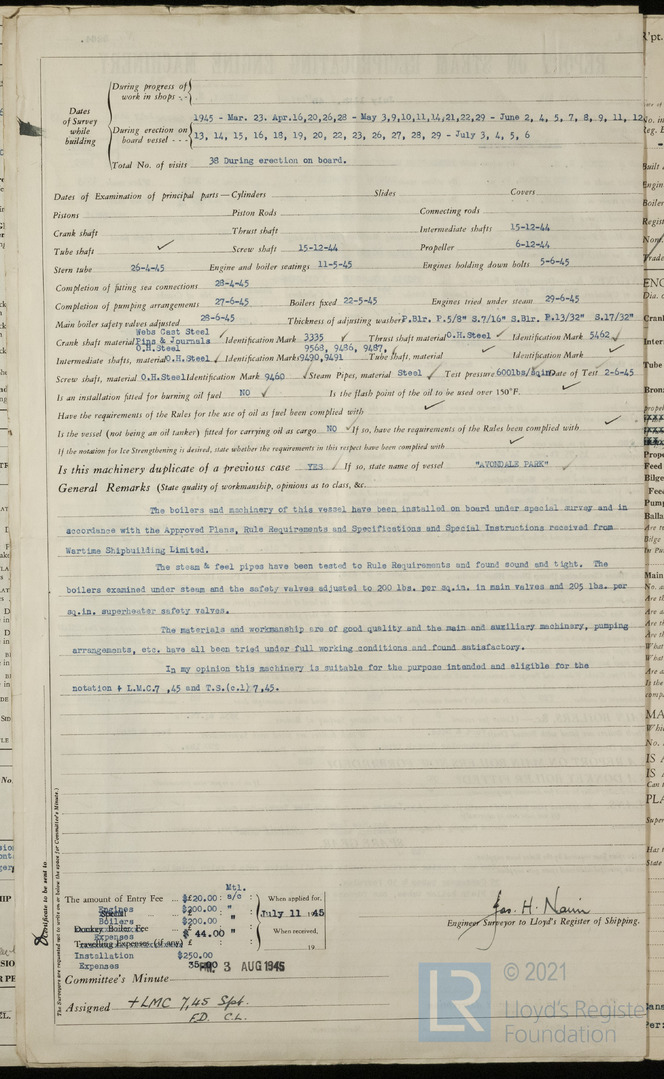 Dates of Survey while building
During progress of work in shops - -
During erection on board vessel - - -
1945 - Mar. 23. Apr.16,20,26,28 - May 3,9,10,11,14,21,22,29 - June 2, 4, 5, 7, 8, 9, 11, 12,
13, 14, 15, 16, 18, 19, 20, 22, 23, 26, 27, 28, 29 - July 3, 4, 5, 6
Total No. of visits 38 During erection on board.
Dates of Examination of principal parts — Cylinders Slides Covers
Pistons Piston Rods Connecting rods
Crank shaft Thrust shaft Intermediate shafts 15-12-44
Tube shaft ✓ Screw shaft 15-12-44 Propeller 6-12-44
Stern tube 26-4-45 Engine and boiler seatings 11-5-45 Engines holding down bolts 5-6-45
Completion of fitting sea connections 28-4-45
Completion of pumping arrangements 27-6-45 Boilers fixed 22-5-45 Engines tried under steam 29-6-45
Main boiler safety valves adjusted 28-6-45 Thickness of adjusting washers P.Blr. P.5/8" S.7/16" S.Blr. P.13/32" S.17/32"
Webs Cast Steel
Crank shaft material Pins & Journals O.H.Steel ✓ Identification Mark 3335 ✓ Thrust shaft material O.H.Steel ✓ Identification Mark 5462 ✓
9568, 9486, 9487,
Intermediate shafts, material O.H.Steel ✓ Identification Marks 9490,9491 ✓ Tube shaft, material ✓ Identification Mark ✓
Screw shaft, material O.H.Steel Identification Mark 9460 ✓ Steam Pipes, material Steel ✓ Test pressure 600lbs/sqin Date of Test 2-6-45
Is an installation fitted for burning oil fuel NO ✓ Is the flash point of the oil to be used over 150°F. ✓
Have the requirements of the Rules for the use of oil as fuel been complied with ✓
Is the vessel (not being an oil tanker) fitted for carrying oil as cargo NO ✓ If so, have the requirements of the Rules been complied with ✓
If the notation for Ice Strengthening is desired, state whether the requirements in this respect have been complied with ✓
Is this machinery duplicate of a previous case YES ✓ If so, state name of vessel "AVONDALE PARK" ✓
General Remarks (State quality of workmanship, opinions as to class, &c.
The boilers and machinery of this vessel have been installed on board under special survey and in
accordance with the Approved Plans, Rule Requirements and Specifications and Special Instructions received from
Wartime Shipbuilding Limited.
The steam & feel pipes have been tested to Rule Requirements and found sound and tight. The
boilers examined under steam and the safety valves adjusted to 200 lbs. per sq.in. in main valves and 205 lbs. per
sq.in. superheater safety valves.
The materials and workmanship are of good quality and the main and auxiliary machinery, pumping
arrangements, etc. have all been tried under full working conditions and found satisfactory.
In my opinion this machinery is suitable for the purpose intended and eligible for the
notation + L.M.C.7 ,45 and T.S.(c.l) 7,45.
Certificate to be sent to
The Surveyors are requested not to write on or below the space for Committee's Minute.)
Mtl.
The amount of Entry Fee ... $120.00 : s/c
Engines $200.00 "
Boilers $200.00 "
Donkey Boiler Fee
Expenses $ 44.00 "
Travelling Expenses (if any) £
Installation $250.00
Expenses
When applied for,
July 11 1945
When received,
19
Jas. H. Nairn
Engineer Surveyor to Lloyd's Register of Shipping.
FRI. 3 AUG 1945
Committee's Minute
Assigned + LMC 7,45 Spt.
F.D. C.L.
LR
© 2021
Lloyd's Register
Foundation